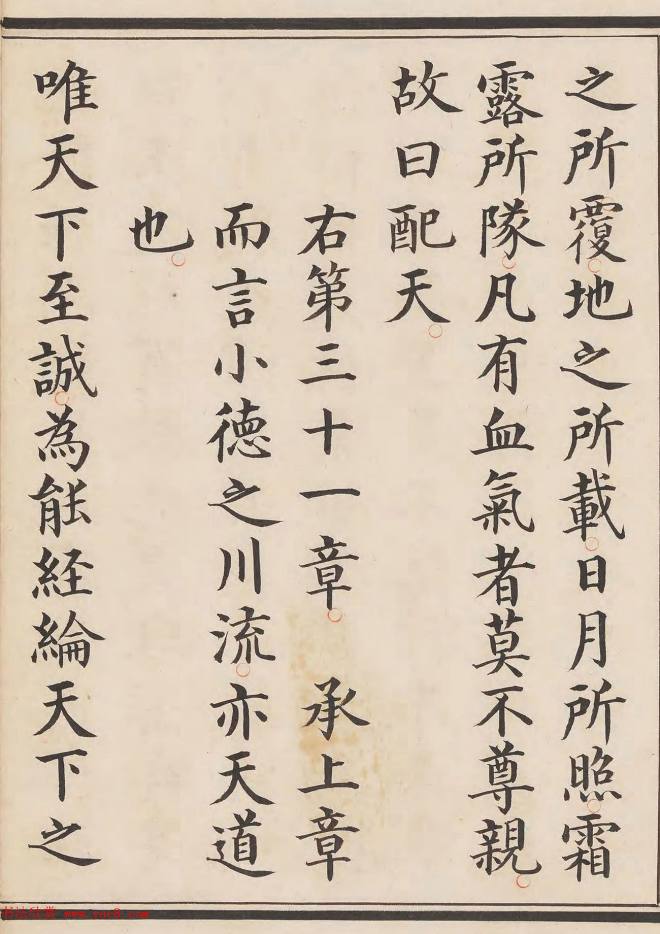 之所覆地之所載日月所照霜
露所隊凡有血氣者莫不尊親
故曰配天
右第三十一章　承上章
而言小德之川流亦天道
也
唯天下至誠為能経綸天下之